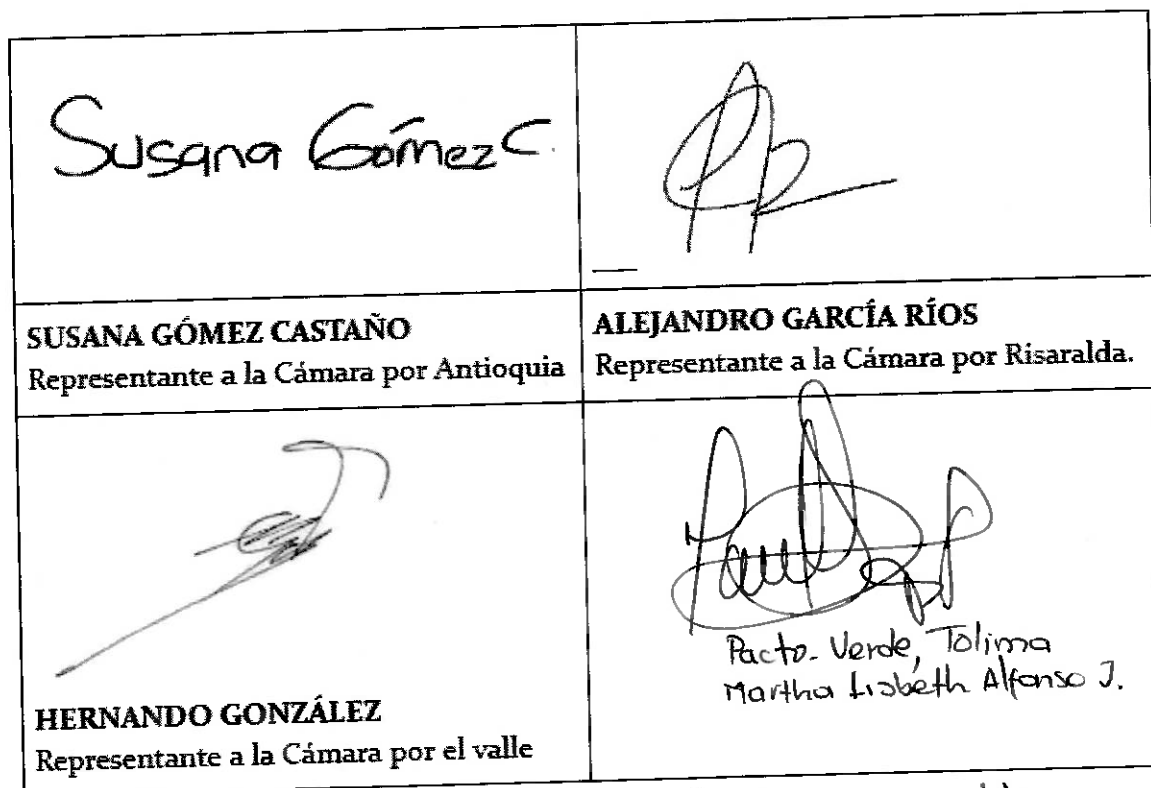 Susana Gómez C.
SUSANA GÓMEZ CASTAÑO
Representante a la Cámara por Antioquia
ALEJANDRO GARCÍA RÍOS
Representante a la Cámara por Risaralda.
HERNANDO GONZÁLEZ
Representante a la Cámara por el valle
Pacto-Verde, Tolima
Martha Lisbeth Alfonso J.